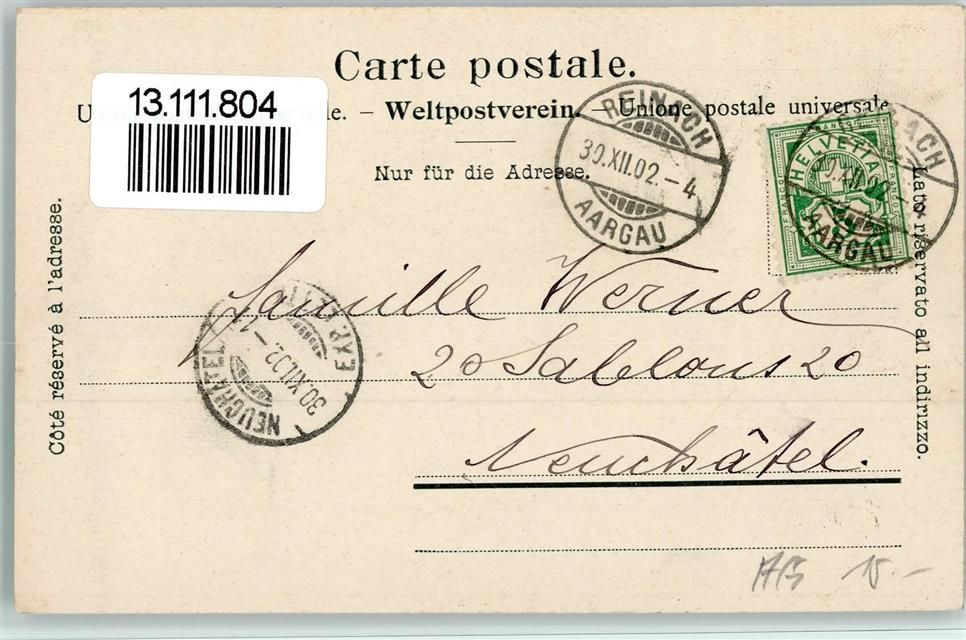 Carte postale.
13.111.804
Weltpostverein. – Unione postale universale
Nur für die Adresse.
REINACH
30.XII.02.-4
AARGAU
REINACH
AARGAU
HELVETIA
FRANCO
Côté réservé à l'adresse.
Lato riservato all indirizzo.
Famille Werner
20 Sablons 20
Neuchâtel.
NEUCHÂTEL
30.XII.02.
EXP. LETT.
15.-